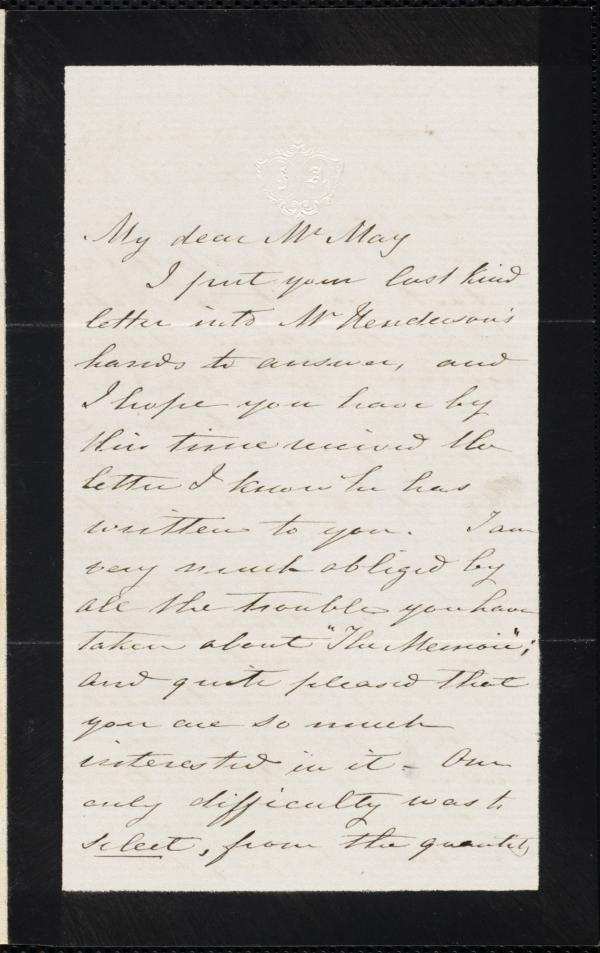 My dear Mr May
I put your last kind
letter into Mr Henderson's
hands to answer, and
I hope you have by
this time received the
letter I know he has
written to you. I am
very much obliged by
all the trouble you have
taken about "The Memoir";
and quite pleased that
you are so much
interested in it - Our
only difficulty was to
select, from the quantity